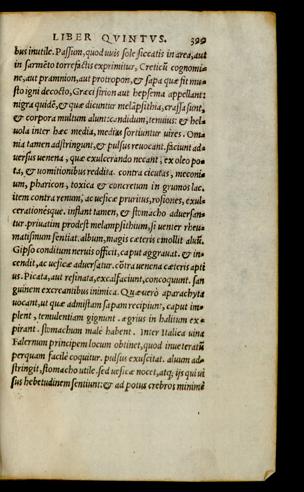 LIBER QVINTVS. 399
bus inutile. Passum, quod uuis sole siccatis in area, aut
in sarmēto torrefactis exprimitur, Creticū cognomi-
ne, aut pramnion, aut protropon, & sapa quæ fit mu-
sto igni decocto, Græci sirion aut hepsema appellant:
nigra quidē, & quæ dicuntur melāpsithia, crassa sunt,
& corpora multum alunt: cādidum, tenuius: & hel-
uola inter hæc media, medias sortiuntur uires. Om-
nia tamen adstringunt, & pulsus reuocant. faciunt ad-
uersus uenena, quæ exulcerando necant, ex oleo po-
ta, & uomitionibus reddita. contra cicutas, meconi-
um, pharicon, toxica & concretum in grumos lac.
item contra renum, ac uesicæ pruritus, rosiones, exul-
cerationésque. inflant tamen, & stomacho aduersan-
tur. priuatim prodest melampsithium, si uenter rheu-
matismum sentiat. album, magis cæteris emollit aluū.
Gipso conditum neruis officit, caput aggrauat. & in-
cendit, ac uesicæ aduersatur. cōtra uenena cæteris apti
us. Picata, aut resinata, excalfaciunt, concoquunt. san
guinem excreantibus inimica. Quæ uerò aparachyta
uocant, ut quæ admistam sapam recipiunt, caput im-
plent, temulentiam gignunt ægrius in halitum ex-
pirant. stomachum malè habent. Inter Italica uina
Falernum principem locum obtinet, quod inueteratū
perquam facilè coquitur. pulsus exuscitat. aluum ad-
stringit, stomacho utile. sed uesicæ nocet, atq; ijs qui ui
sus hebetudinem sentiunt: & ad potus crebros minimè